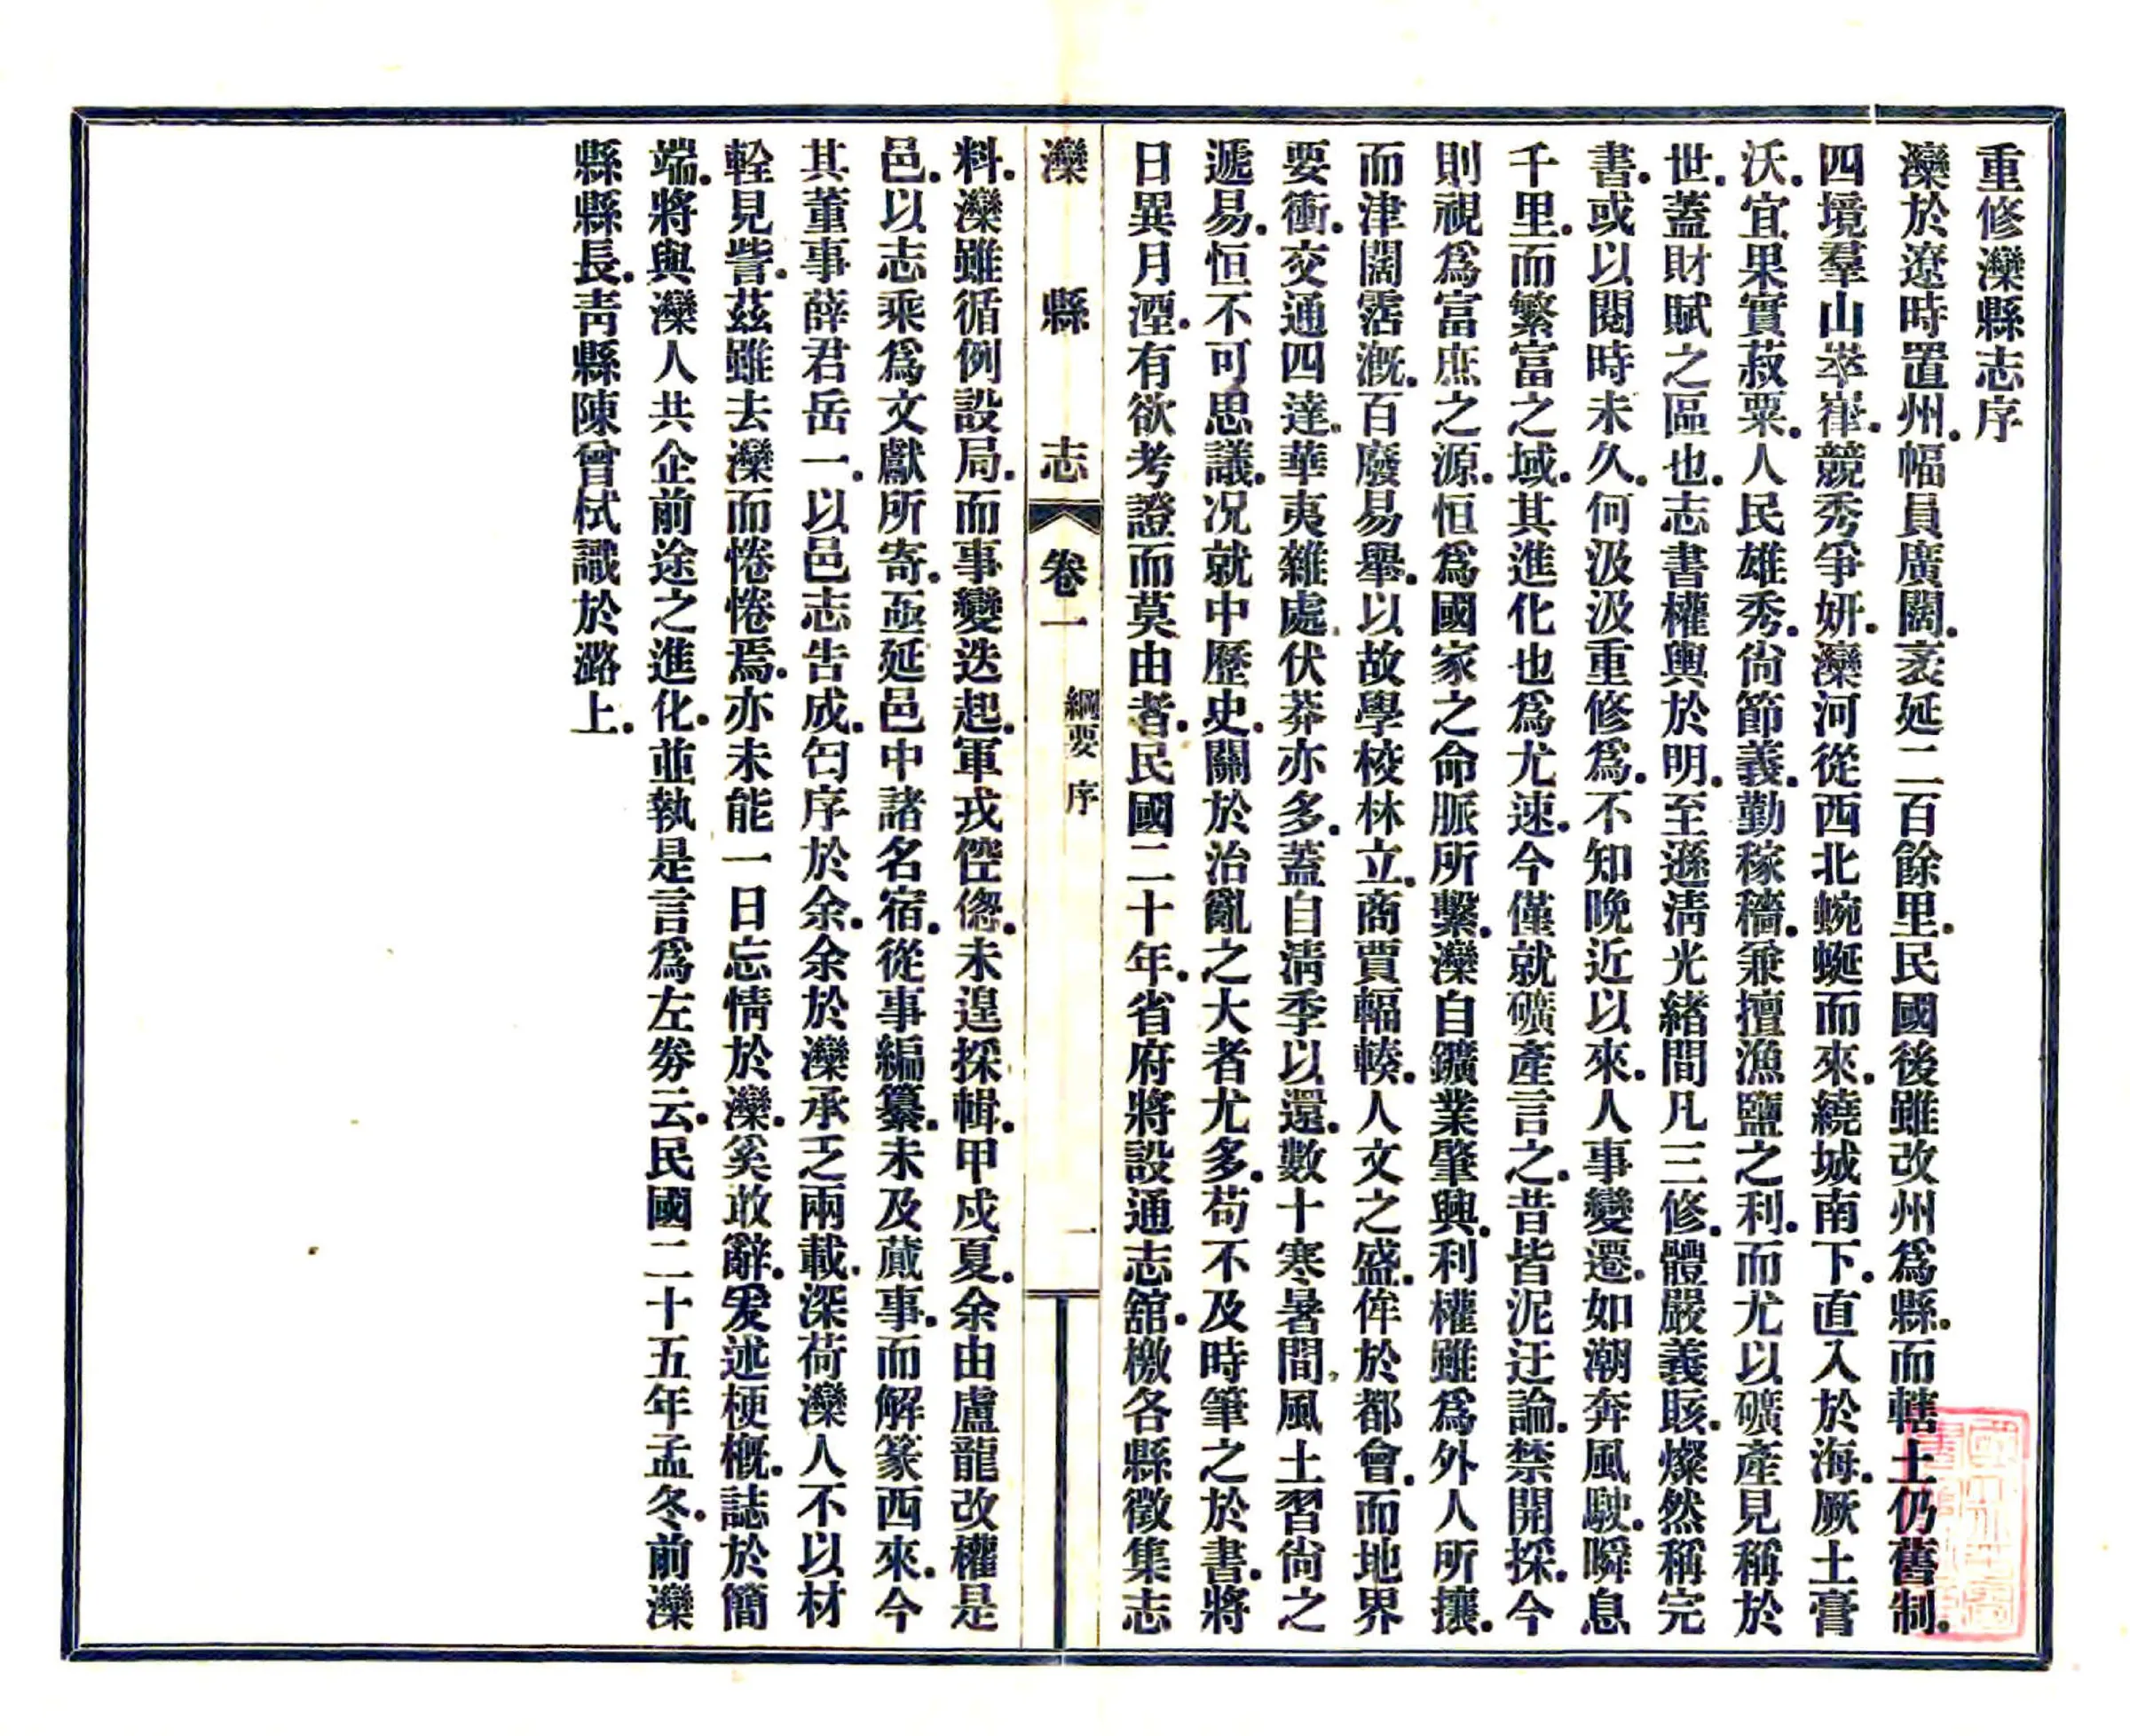 重修灤縣志序
灤於遼時置州.幅員廣闊.袤延二百餘里.民國後雖改州爲縣.而轄土仍舊制.
四境羣山崒嵂.競秀爭妍.灤河從西北蜿蜒而來.繞城南下.直入於海.厥土膏
沃.宜果實菽粟.人民雄秀.尙節義.勤稼穡.兼擅漁鹽之利.而尤以礦產見稱於
世.蓋財賦之區也.志書權輿於明.至遜淸光緒間凡三修.體嚴義賅.燦然稱完
書.或以閱時未久.何汲汲重修爲.不知晚近以來.人事變遷.如潮奔風駛.瞬息
千里.而繁富之域.其進化也爲尤速.今僅就礦產言之.昔皆泥迂論.禁開採.今
則視爲富庶之源.恒爲國家之命脈所繫.灤自鑛業肇興.利權雖爲外人所攘.
而津闊霑漑.百廢易舉.以故學校林立.商賈輻輳.人文之盛.侔於都會.而地界
要衝.交通四達.華夷雜處.伏莽亦多.蓋自淸季以還.數十寒暑間.風土習尙之
遞易.恒不可思議.况就中歷史.關於治亂之大者尤多.苟不及時筆之於書.將
日異月湮.有欲考證而莫由者.民國二十年.省府將設通志舘.檄各縣徵集志
灤縣志 卷一 綱要 序 一
料.灤雖循例設局.而事變迭起.軍戎倥偬.未遑採輯.甲戍夏.余由盧龍改權是
邑.以志乘爲文獻所寄.亟延邑中諸名宿.從事編纂.未及蕆事.而解篆西來.今
其董事薛君岳一.以邑志告成.匄序於余.余於灤承乏兩載.深荷灤人不以材
輇見訾.茲雖去灤而惓惓焉.亦未能一日忘情於灤.奚敢辭.爰述梗概.誌於簡
端.將與灤人共企前途之進化.並執是言爲左劵云.民國二十五年孟冬.前灤
縣縣長.靑縣陳曾栻識於潞上.